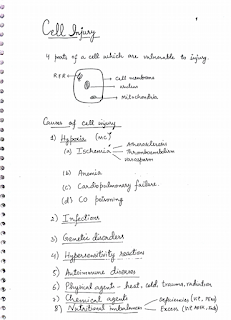 Cell Injury
4 parts of a cell which are vulnerable to injury.
RER
cell membrane
nucleus
mitochondria
Causes of cell injury
1) Hypoxia (MC)
(a) Ischemia
Atherosclerosis
Thromboembolism
vasospasm
(b) Anemia
(c) Cardiopulmonary failure.
(d) CO poisoning
2) Infections
3) Genetic disorders
4) Hypersensitivity reaction
5) Autoimmune diseases
6) Physical agent - heat, cold, trauma, radiation
7) Chemical agents
8) Nutritional imbalances
Deficiencies (VIT, PEM)
Excess